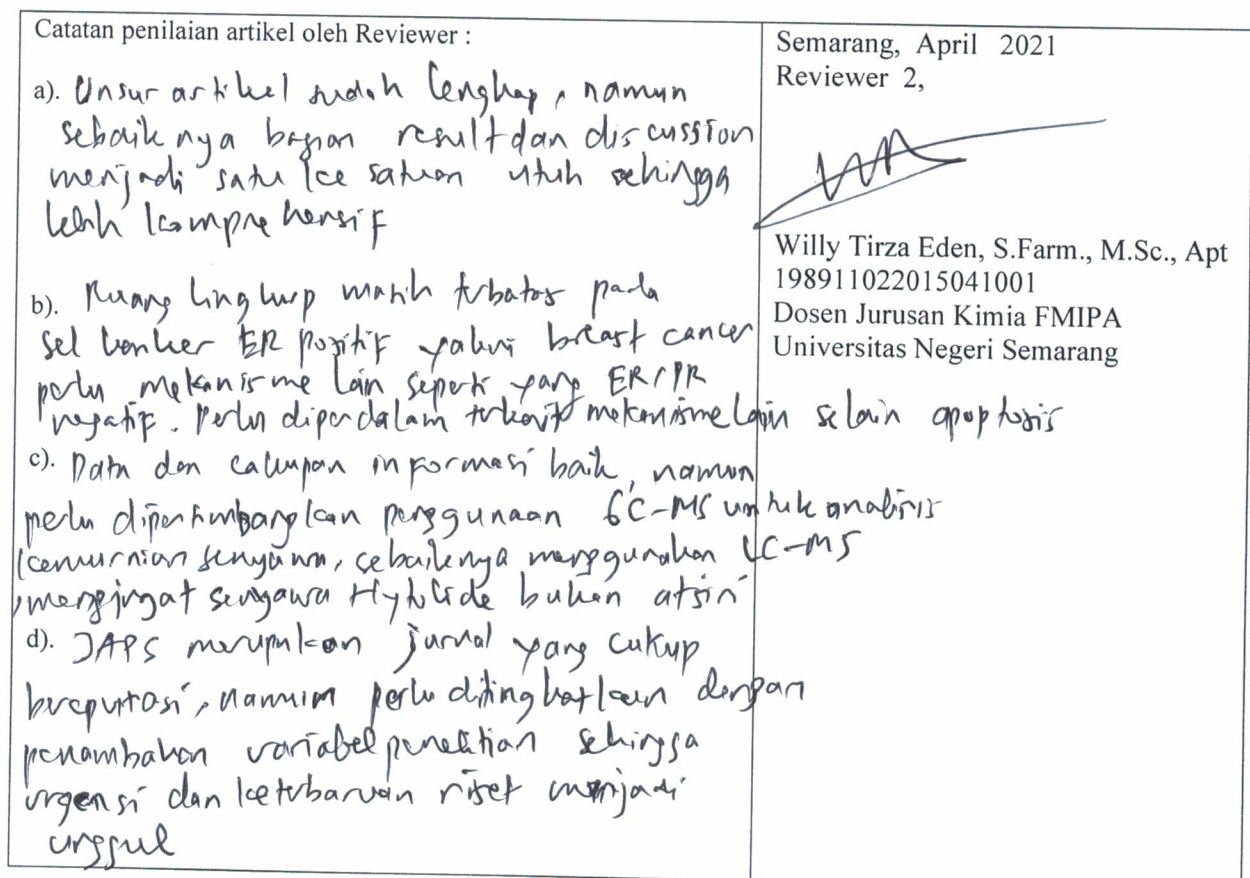 Catatan penilaian artikel oleh Reviewer :
a). Unsur artikel sudah lengkap, namun
sebaiknya bagian result dan discussion
menjadi satu kesatuan utuh sehingga
lebih komprehensif
b). Ruang lingkup masih terbatas pada
sel kanker ER positif yakni breast cancer
perlu mekanisme lain seperti yang ER/PR
negatif. Perlu diperdalam terkait mekanisme lain selain apoptosis
c). Data dan cakupan informasi baik, namun
perlu dipertimbangkan penggunaan GC-MS untuk analisis
kemurnian senyawa, sebaiknya menggunakan LC-MS
, mengingat senyawa bukan atsiri
d). JAPS merupakan jurnal yang cukup
bereputasi, namun perlu ditingkatkan dengan
penambahan variabel penelitian sehingga
urgensi dan keterbaruan riset menjadi
unggul
Semarang, April 2021
Reviewer 2,
Willy Tirza Eden, S.Farm., M.Sc., Apt
198911022015041001
Dosen Jurusan Kimia FMIPA
Universitas Negeri Semarang